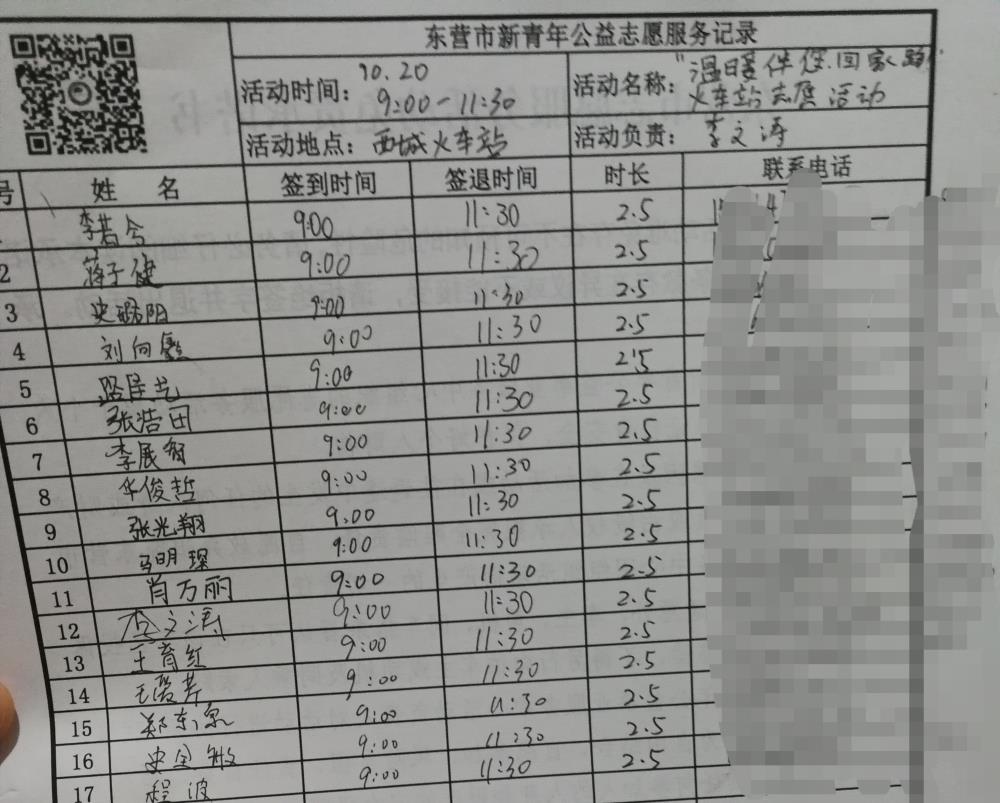 东营市新青年公益志愿服务记录
活动时间： 10.20 9:00-11:30 活动名称： "温暖伴您.回家路 火车站志愿活动
活动地点： 西城火车站 活动负责： 李文涛
号 姓 名 签到时间 签退时间 时长 联系电话
9:00 11:30 2.5
2 蒋子健 9:00 11:30 2.5
3 史璐阳 9:00 11:30 2.5
4 刘向 9:00 11:30 2.5
5 路佳艺 9:00 11:30 2.5
6 张浩田 9:00 11:30 2.5
7 李展智 9:00 11:30 2.5
8 华俊哲 9:00 11:30 2.5
9 张光翔 9:00 11:30 2.5
10 马明琛 9:00 11:30 2.5
11 肖万丽 9:00 11:30 2.5
12 李文涛 9:00 11:30 2.5
13 王育红 9:00 11:30 2.5
14 9:00 11:30 2.5
15 郑东泉 9:00 11:30 2.5
16 史全敏 9:00 11:30 2.5
17 程波 9:00 11:30 2.5